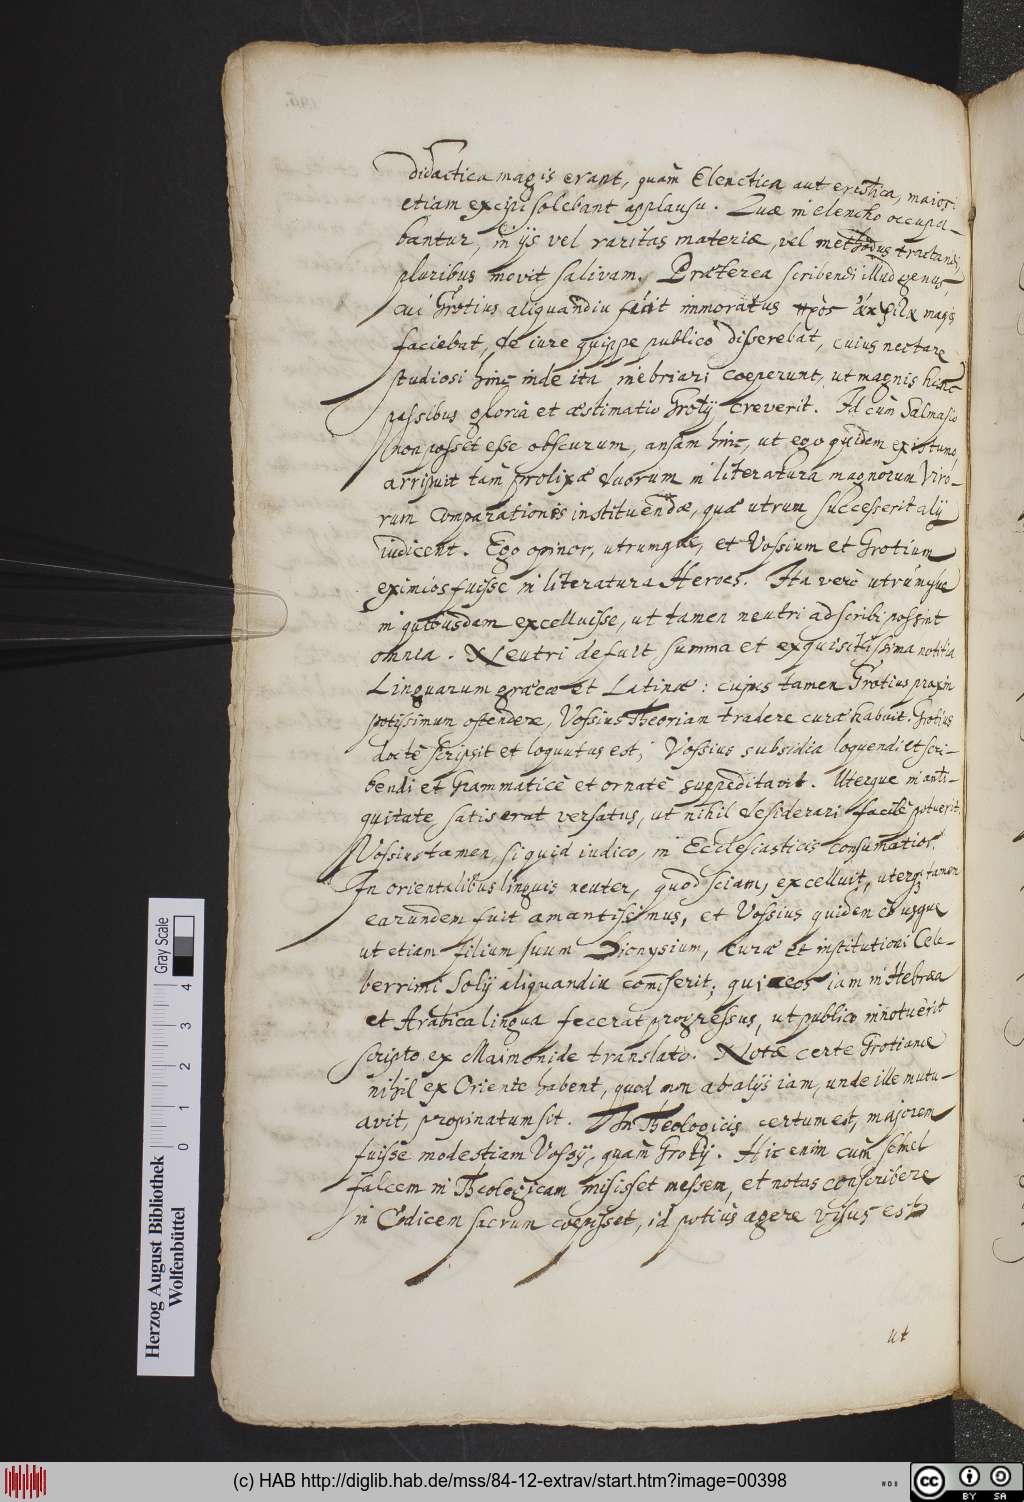 didactica magis erant, quàm Elenctica aut eristica, maiori
etiam excipi solebant applausu. Quæ in elencho occupa-
bantur, in ijs vel raritas materiæ, vel methodus tractandi,
pluribus movit salivam. Præterea scribendi illud genus,
cui Grotius aliquandiu fuit immoratus πρὸς magis
faciebat, de iure quippe publico disserebat, cuius nectare
studiosi hinc inde ita inebriari coeperunt, ut magnis hinc
passibus gloria et æstimatio Grotij creverit. Id cùm Salmasio
non posset esse obscurum, ansam hinc, ut ego quidem existimo,
arripuit tam prolixæ duorum in literatura magnorum Viro-
rum comparationis instituendæ, quæ utrum successerit alij
iudicent. Ego opinor, utrumque, et Vossium et Grotium
eximios fuisse in literatura Heroes. Ita verò utrumque
in quibusdam excelluisse, ut tamen neutri adscribi possint
omnia. Neutri defuit summa et exquisitissima notitia
Linguarum græcæ et Latinæ: cujus tamen Grotius praxin
potissimum ostendere, Vossius Theoriam tradere curæ habuit. Grotius
doctè scripsit et loquutus est; Vossius subsidia loquendi et scri-
bendi et Grammaticè et ornatè suppeditavit. Uterque in anti-
quitate satis erat versatus, ut nihil desiderari facilè potuerit.
Vossius tamen, si quid iudico, in Ecclesiasticis consumatior.
In orientalibus linguis neuter, quod sciam, excelluit, uterq; tamen
earundem fuit amantissimus, et Vossius quidem eò usque
ut etiam filium suum Dionysium, curæ et institutioni Cele-
berrimi Solij aliquandiu comiserit; qui eos iam in Hebræa
et Arabica lingua fecerat progressus, ut publico innotuerit
scripto ex Maimonide translato. Notæ certe Grotianæ
nihil ex Oriente habent, quod non ab alijs iam, unde ille mutu-
avit, propinatum sit. In Theologicis certum est, majorem
fuisse modestiam Vossij, quàm Grotij. Hic enim cùm semel
falcem in Theologicam misisset messem, et notas conscribere
in Codicem sacrum coepisset, id potius agere visus est
ut
Herzog August Bibliothek
Wolfenbüttel
Gray Scale
0 1 2 3 4
(c) HAB http://diglib.hab.de/mss/84-12-extrav/start.htm?image=00398
cc BY SA